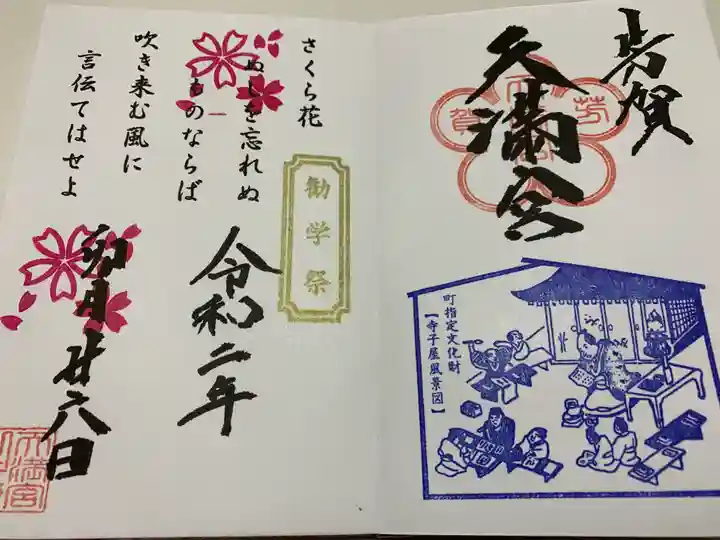 芳賀
天満宮
天 芳 賀 宮
町指定文化財
【寺子屋風景図】
さくら花
ぬしを忘れぬ
ものならば
吹き来む風に
言伝てはせよ
勧学祭
令和二年
卯月廿六日
天満宮